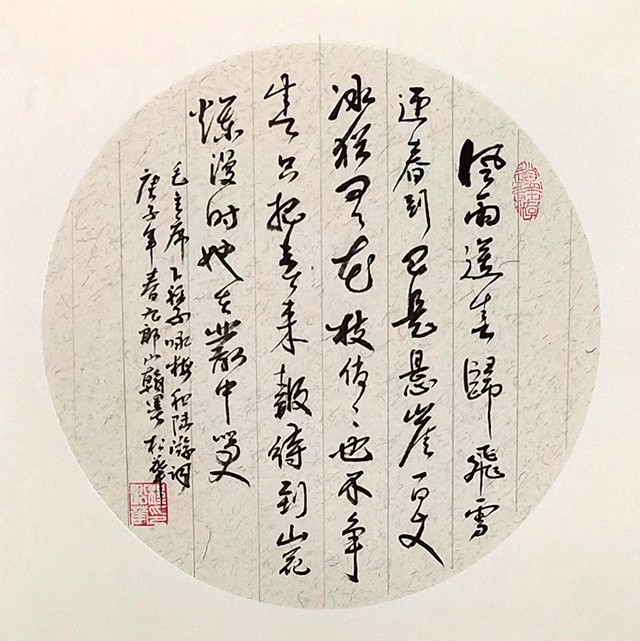 風雨送春歸飛雪
迎春到已是悬崖百丈
冰猶有花枝俏〻也不争
春只把春来報待到山花
爛漫时她在叢中笑
毛主席卜算子咏梅和陆游词
庚子年春九郎山翰墨松